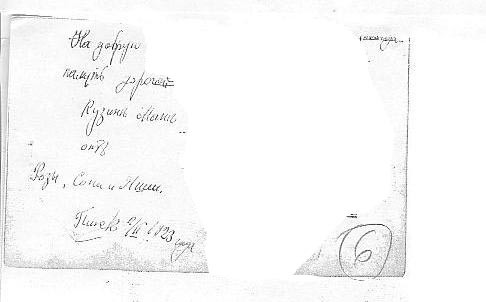 На добрую
память дорогой
Кузинѣ Манѣ
отъ
Розы, Сони и Яши.
Пинскъ 1923 года
6